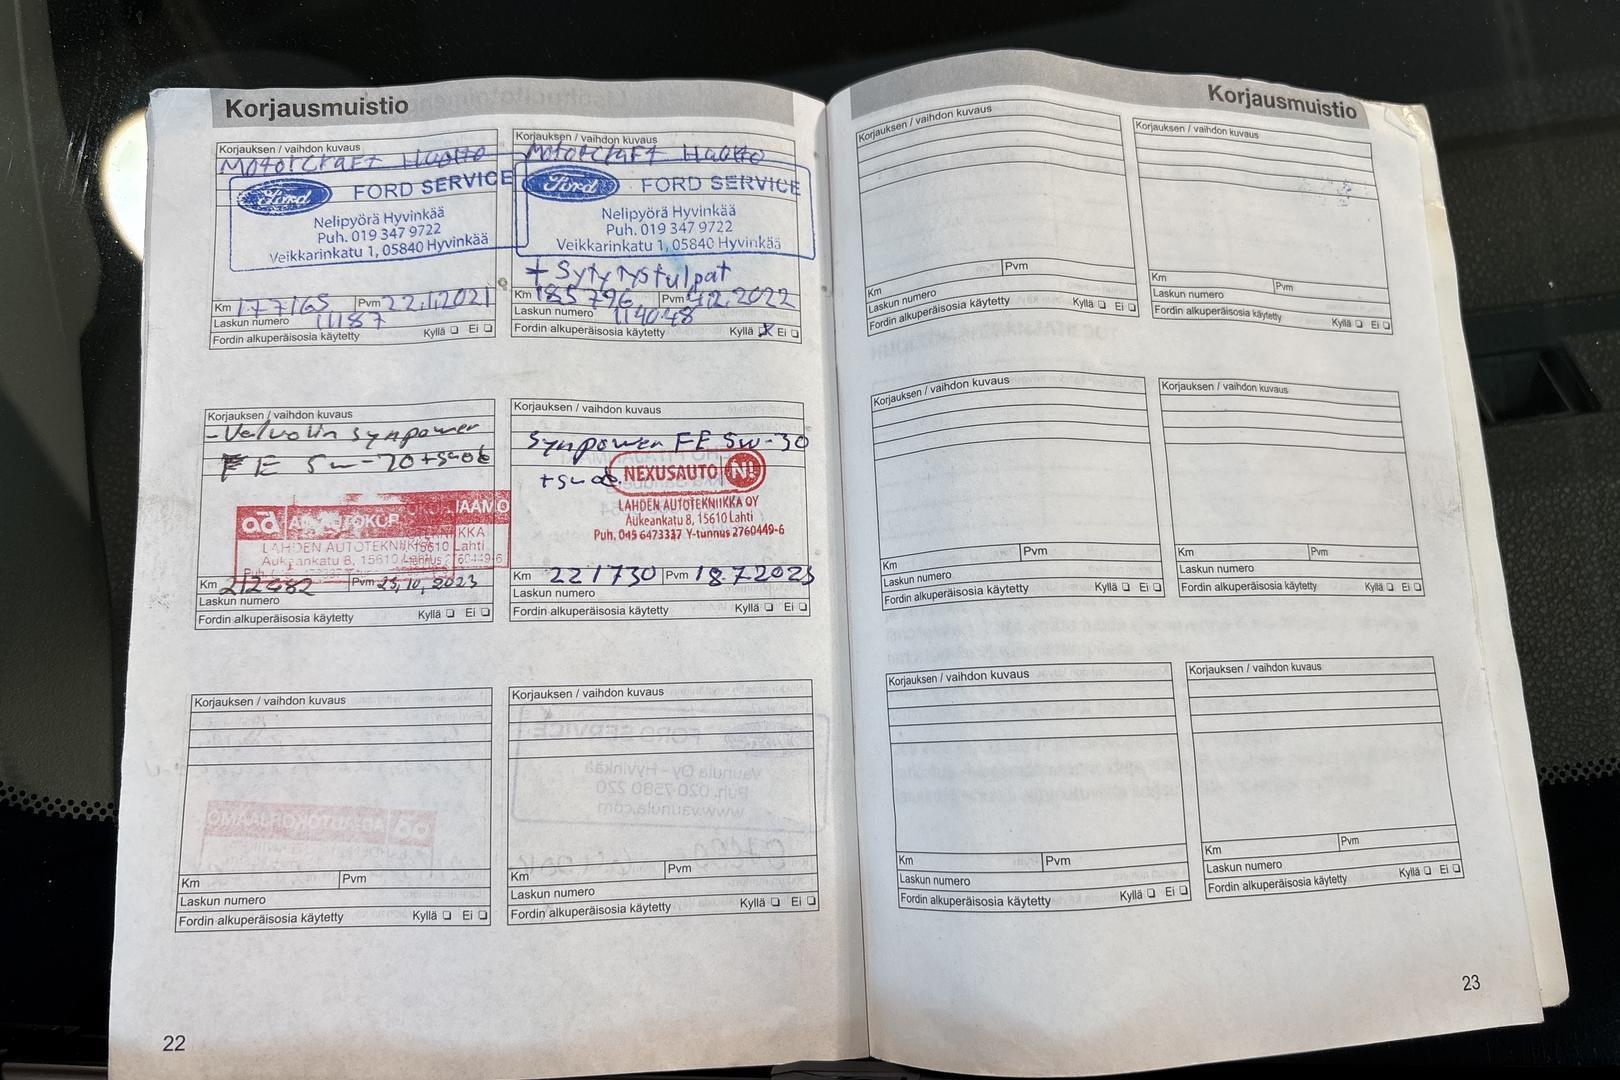 Korjausmuistio
Korjauksen / vaihdon kuvaus
Motorcraft Huolto
Ford FORD SERVICE
Nelipyörä Hyvinkää
Puh. 019 347 9722
Veikkarinkatu 1, 05840 Hyvinkää
Km 177165 Pvm 22.1.2021
Laskun numero 11187
Fordin alkuperäisosia käytetty Kyllä Ei
Korjauksen / vaihdon kuvaus
Motorcraft Huolto
Ford FORD SERVICE
Nelipyörä Hyvinkää
Puh. 019 347 9722
Veikkarinkatu 1, 05840 Hyvinkää
+ Sytytystulpat
Km 185796 Pvm 4.2.2022
Laskun numero 114048
Fordin alkuperäisosia käytetty Kyllä X Ei
Korjauksen / vaihdon kuvaus
- Valvolin synpower
FE 5w-20 + suod
ad
LAHDEN AUTOTEKNIIKKA
Aukeankatu 8, 15610 Lahti
Km 212982 Pvm 25.10.2023
Laskun numero
Fordin alkuperäisosia käytetty Kyllä Ei
Korjauksen / vaihdon kuvaus
Synpower FE 5w-30
+ suod.
NEXUSAUTO N!
LAHDEN AUTOTEKNIIKKA OY
Aukeankatu 8, 15610 Lahti
Puh. 045 6473337 Y-tunnus 2760449-6
Km 221730 Pvm 18.7.2025
Laskun numero
Fordin alkuperäisosia käytetty Kyllä Ei
Korjauksen / vaihdon kuvaus
Km Pvm
Laskun numero
Fordin alkuperäisosia käytetty Kyllä Ei
Korjauksen / vaihdon kuvaus
Km Pvm
Laskun numero
Fordin alkuperäisosia käytetty Kyllä Ei
22
Korjausmuistio
Korjauksen / vaihdon kuvaus
Km Pvm
Laskun numero
Fordin alkuperäisosia käytetty Kyllä Ei
Korjauksen / vaihdon kuvaus
Km Pvm
Laskun numero
Fordin alkuperäisosia käytetty Kyllä Ei
Korjauksen / vaihdon kuvaus
Km Pvm
Laskun numero
Fordin alkuperäisosia käytetty Kyllä Ei
Korjauksen / vaihdon kuvaus
Km Pvm
Laskun numero
Fordin alkuperäisosia käytetty Kyllä Ei
Korjauksen / vaihdon kuvaus
Km Pvm
Laskun numero
Fordin alkuperäisosia käytetty Kyllä Ei
Korjauksen / vaihdon kuvaus
Km Pvm
Laskun numero
Fordin alkuperäisosia käytetty Kyllä Ei
23